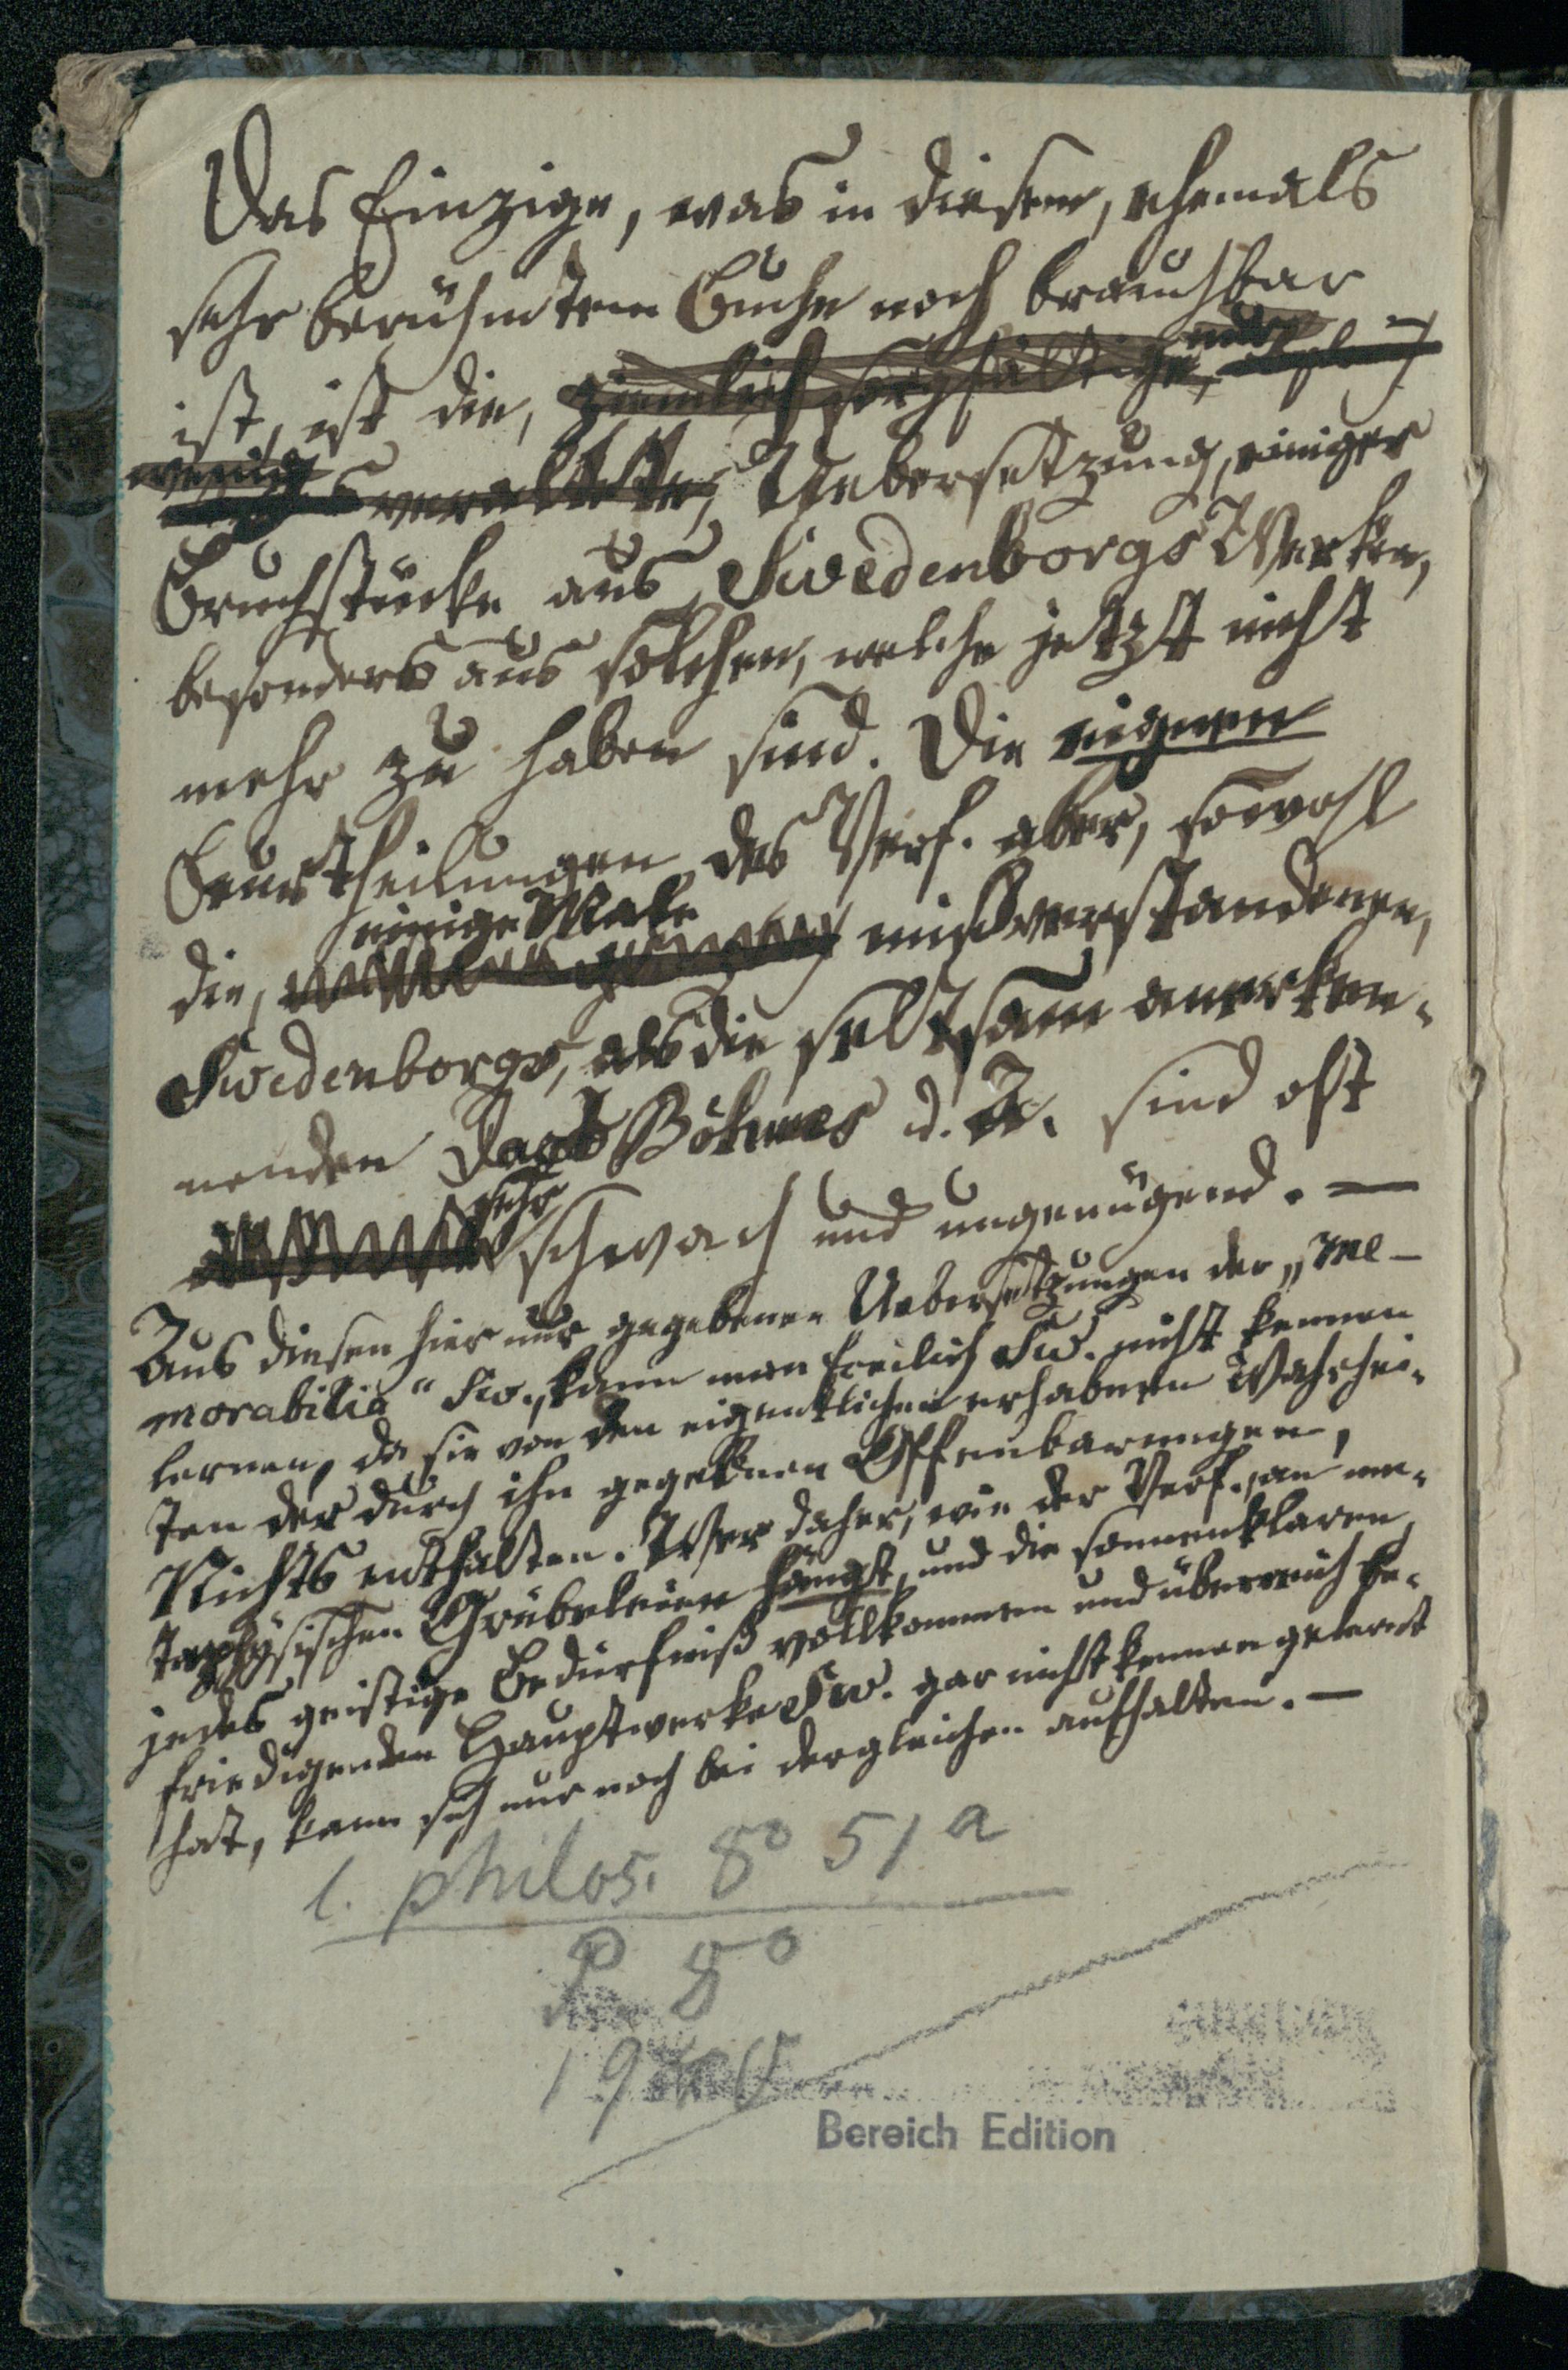 Das Einzige, was in diesem, ehemals
sehr berühmten Buche noch brauchbar
ist, ist die, ziemlich sorgfältige, nur
wenig veraltete, Uebersetzung, einiger
Bruchstücke aus Swedenborgs Werken,
besonders aus solchen, welche jetzt nicht
mehr zu haben sind. Die eignen
Beurtheilungen des Verf. aber, sowohl
einige Male
die, mißverstandenen,
Swedenborgs, als die seltsam anerken-
nenden Jacob Böhmes u. A. sind oft
sehr
schwach und ungenügend. —
Aus diesen hier nur gegebenen Uebersetzungen der „Me-
morabilia“ Sw., kann man freilich Sw. nicht kennen
lernen, da sie von den eigentlichen erhabnen Wahrhei-
ten der durch ihn gegebnen Offenbarungen,
Nichts enthalten. Wer daher, wie der Verf., an me-
taphysischen Grübeleien hängt, und die sonnenklaren,
jedes geistige Bedürfniß vollkommen und überreich be-
friedigenden Hauptwerke Sw. gar nicht kennen gelernt
hat, kann sich nur noch bei dergleichen aufhalten. —
l. philos. 8° 51a
P 8°
Bereich Edition